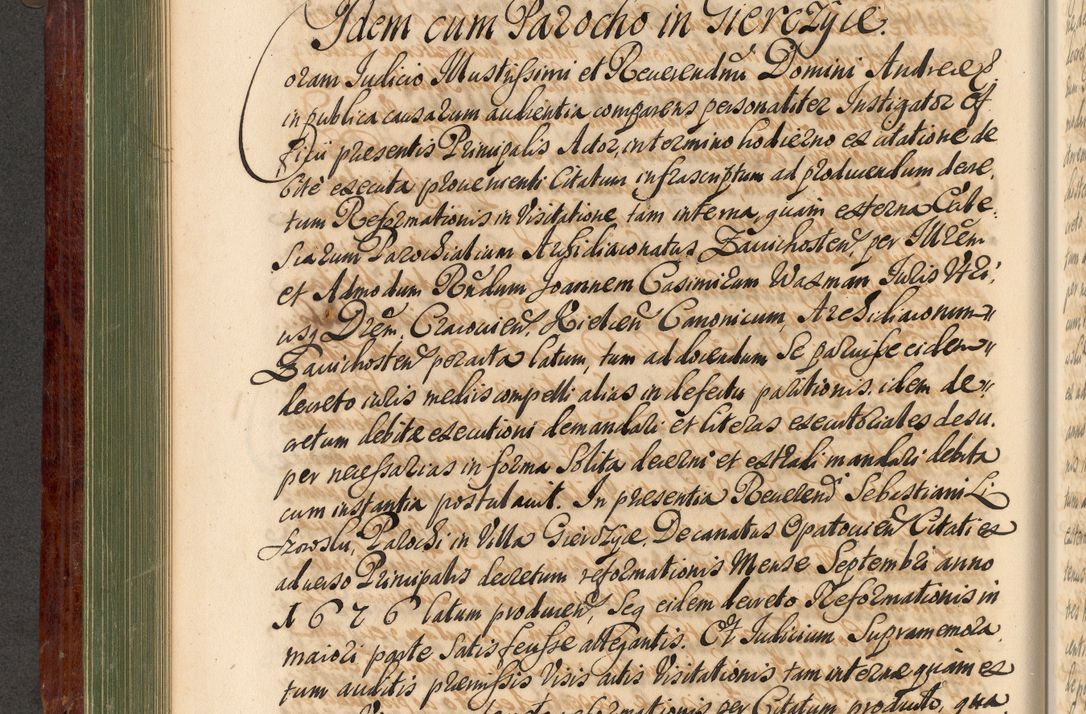 Idem cum Parocho in Gierczyce.
Coram Iudicio Illustrissimi et Reuerendmi Domini Andreae &.
in publica causarum audientia comparens personaliter Instigator Of
ficii presentis Principalis Actor, in termino hodierno ex citatione de
bite executa prouenienti Citatum infrascriptum ad producendum decre
tum Reformationis in Visitatione tam interna, quam externa Eccle
siarum Parochialium Archidiaconatus Zauichosten, per Illrem
et Admodum Rndum Joannem Casimirum Waxman Iuris Vtri
usq Drem Cracouien, Kielcen Canonicum, Archidiaconum
Zauichosten peracta latum, tum ad docendum se paruisse eidem
decreto iuris mediis compelli alias in defectu paritionis idem de
cretum debitae executioni demandari et literas executoriales desu
per necessarias in forma Solita decerni et extradi mandari debita
cum instantia postulauit. In presentia Reuerend Sebestiani Li
szowski, Parochi in Villa Gierczyce, Decanatus Opatouien Citati ex
aduerso Principalis decretum reformationis Mense Septembri anno
1676 latum producen, Seq eidem decreto Reformationis in
maiori parte Satis fecisse allegantis. Et Iudicium Supramemora
tum auditis praemissis Visis actis Visitationis tam internae quam ex
reformationis per Citatum producto, qua